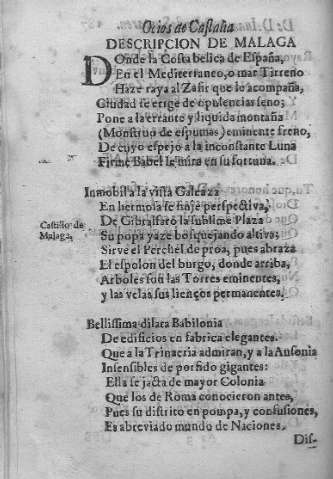 Ocios de Castalia
DESCRIPCION DE MALAGA
DOnde la Costa belica de España,
En el Mediterraneo, o mar Tirreno
Haze raya al Zafir que lo acompaña,
Ciudad se erige de opulencias seno;
Pone a la errante y liquida montaña
(Monstruo de espumas) eminente freno,
De cuyo espejo a la inconstante Luna
Firme Babel se mira en su fortuna.
Inmobil a la vista Galeaza
En hermosa se finje perspectiva,
De Gibralfaro la sublime Plaza
Castillo de
Malaga,
Su popa yaze bosquejando altiva;
Sirve el Perchel de proa, pues abraza
El espolon del burgo, donde arriba,
Arboles son las Torres eminentes,
y las velas sus lienços permanentes.
Bellissima dilata Babilonia
De edificios en fabrica elegantes.
Que a la Trinacria admiran, y a la Ausonia
Insensibles de porfido gigantes:
Ella se jacta de mayor Colonia
Que los de Roma conocieron antes,
Pues su distrito en pompa, y confusiones,
Es abreviado mundo de Naciones.
Dis-